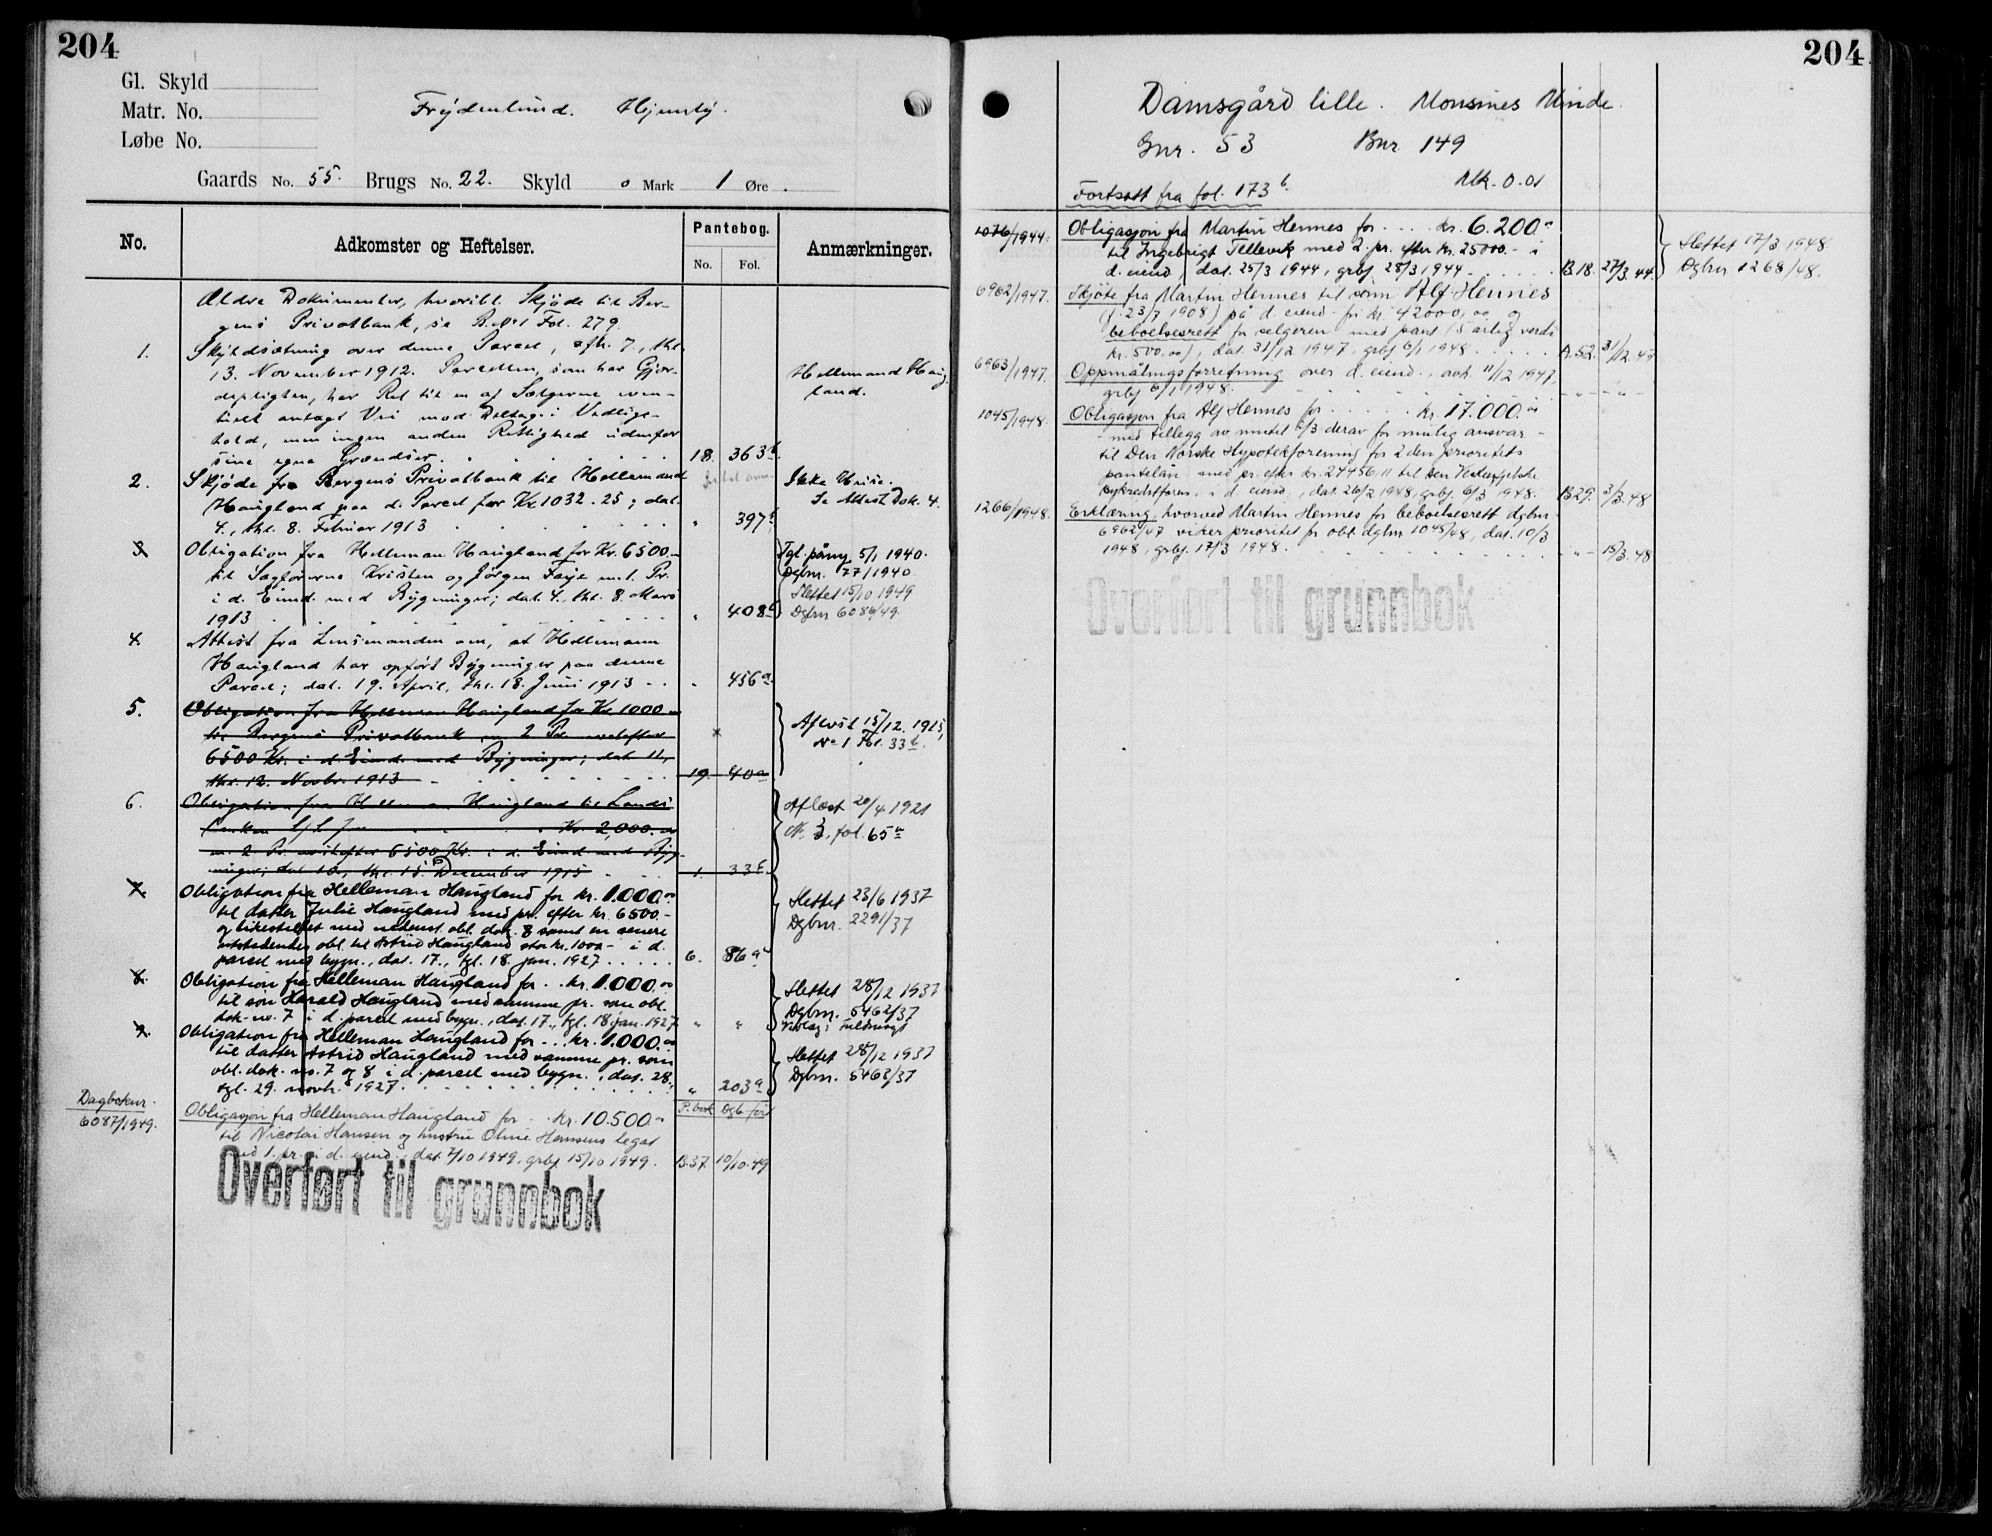 204
Gl. Skyld
Matr. No.
Løbe No.
Frydenlund. Hjemly.
Gaards No. 55. Brugs No. 22. Skyld 0 Mark 1 Øre.
No. Adkomster og Heftelser. Pantebog. No. Fol. Anmærkninger.
Ældre Dokumenter, hvoribl. Skjøde til Ber-
gens Privatbank, se B. No 1 Fol. 279.
1. Skyldsætning over denne Parcel, afh. 7., thl.
13. November 1912. Parcellen, som har Gjer-
depligten, har Ret til en af Sælgerne even-
tuelt anlagt Vei mod Deltage i Vedlige-
hold, men ingen anden Rettighed udenfor
sine egne Grændser. 18. 363 b.
Hellemand Haug-
land.
2. Skjøde fra Bergens Privatbank til Hellemand
Haugland paa d. Parcel for Kr. 1032.25; dat.
4., thl. 8. Februar 1913 " 397 b
Ikke Huse.
Se Attest Dok. 4.
3. Obligation fra Helleman Haugland for Kr. 6500.-
til Sagførerne Kristen og Jørgen Faye m. 1. Pr.
i d. Eiend. med Bygninger; dat. 4., thl. 8. Mars
1913 " 408 b
Tgl. påny 5/1 1940.
Dgbnr. 77/1940.
Slettet 15/10 1949
Dgbnr 6086/49.
4. Attest fra Lensmanden om, at Hellemann
Haugland har opført Bygninger paa denne
Parcel; dat. 19. April, thl. 18. Juni 1913 - - " 456 a.
5. Obligation fra Helleman Haugland for Kr. 1000.-
til Bergens Privatbank m. 2 Pr. næstefter
6500 Kr. i d. Eiend. med Bygninger; dat. 11.,
thl. 12. Novbr. 1913 19. 40 a
Aflæst 15/12. 1915,
No 1 Fol. 33 b.
6. Obligation fra Helleman Haugland til Lands-
Kr. 2,000.00
m. 2 Pr. næstefter 6500 Kr. i d. Eiend. med Byg-
ninger; dat. 10., thl. 15. December 1915 1. 33 b.
Aflæst 20/4 1921
N. 3, fol. 65 a
7. Obligation fra Helleman Haugland for kr. 1.000.00
til datter Julie Haugland med pr. efter kr. 6500.-
og likestillet med nedenst. obl. dok. 8 samt en senere
utstedendes obl. til Astrid Haugland stor kr. 1000- i d.
parcel med bygn., dat. 17., tgl. 18. jan. 1927 . . . . . 6. 86 a
Slettet 23/6 1937
Dgbnr. 2291/37
8. Obligation fra Helleman Haugland for . . kr. 1.000.00
til søn Harald Haugland med samme pr. som obl.
dok. no. 7 i d. parcel med bygn., dat. 17., tgl. 18. jan. 1927 " "
Slettet 28/12 1937
Dgbnr. 5462/37
9. Obligation fra Helleman Haugland for . . . kr. 1.000.00
til datter Astrid Haugland med samme pr. som
obl. dok. no. 7 og 8 i d. parcel med bygn., dat. 28.,
tgl. 29. novb. 1927. " 203 a
Slettet 28/12 1937
Dgbnr. 5463/37
Dagboknr.
6087/1949.
P. bok Dgb. ført
Obligasjon fra Helleman Haugland for . . kr. 10.500.-
til Nicolai Hansen og hustru Oline Hansens legat
med 1. pr. i d. eiend., dat. 7/10 1949, grbf. 15/10 1949. B.37. 10/10.49
Overført til grunnbok
204
Damsgård lille. Monsines Minde
Gnr. 53 Bnr. 149
Fortsatt fra fol. 173 b. Mk. 0.01
1076/1944. Obligasjon fra Martin Hennes for . . . kr. 6.200.-
til Ingebrigt Tellevik med 2. pr. efter kr. 25000.- i
d. eiend. dat. 25/3 1944, grbf 28/3 1944 - . . . . . B.18. 27/3.44.
Slettet 17/3 1948
Dgbnr 1268/48.
6962/1947. Skjøte fra Martin Hennes til sønn Alf Hennes
(f. 23/7 1908) på d. eiend. for kr. 42000,00 og
beboelsesrett for selgeren med pant (5 årlig verdi
kr. 500,00), dat. 31/12 1947, grbf. 6/1 1948 . . . . . A.52. 31/12.47
6963/1947. Oppmålingsforretning over d. eiend., avh. 11/12 1947,
grbf 6/1 1948. - " - - " -
1045/1948. Obligasjon fra Alf Hennes for . . . . . kr. 17.000.00
- med tillegg av inntil 1/3 derav for mulig ansvar -
til Den Norske Hypotekforening for 2den prioritets
pantelån med pr. efter kr. 27456,11 til Den Vestenfjelske
bykredittforen. i d. eiend., dat. 26/2 1948, grbf. 6/3 1948. B.29. 3/3.48
1266/1948. Erklæring, hvorved Martin Hennes for beboelsesrett dgbnr.
6962/47 viker prioritet for obl. dgbnr 1045/48, dat. 10/3
1948, grbf. 17/3 1948. - " - 15/3.48
Overført til grunnbok